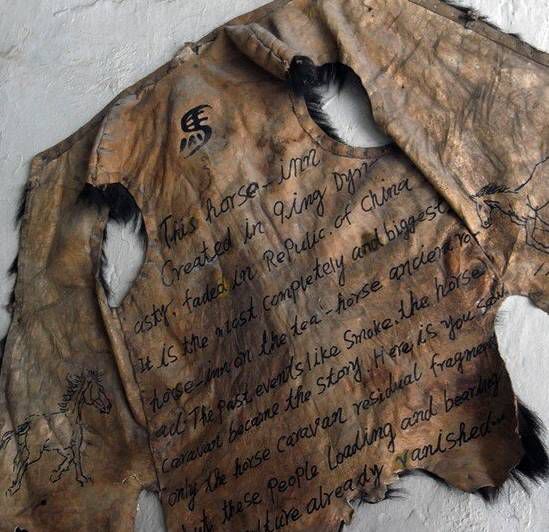 This horse-inn
Created in Qing Dyn
asty. faded in Repulic of China
It is the most completely and biggest
horse-inn on the tea-horse ancient ro
ad. The past events like smoke. the horse
Caravan became the story. Here is you saw
only the horse caravan residual fragment
these people loading and bearing
already vanished...